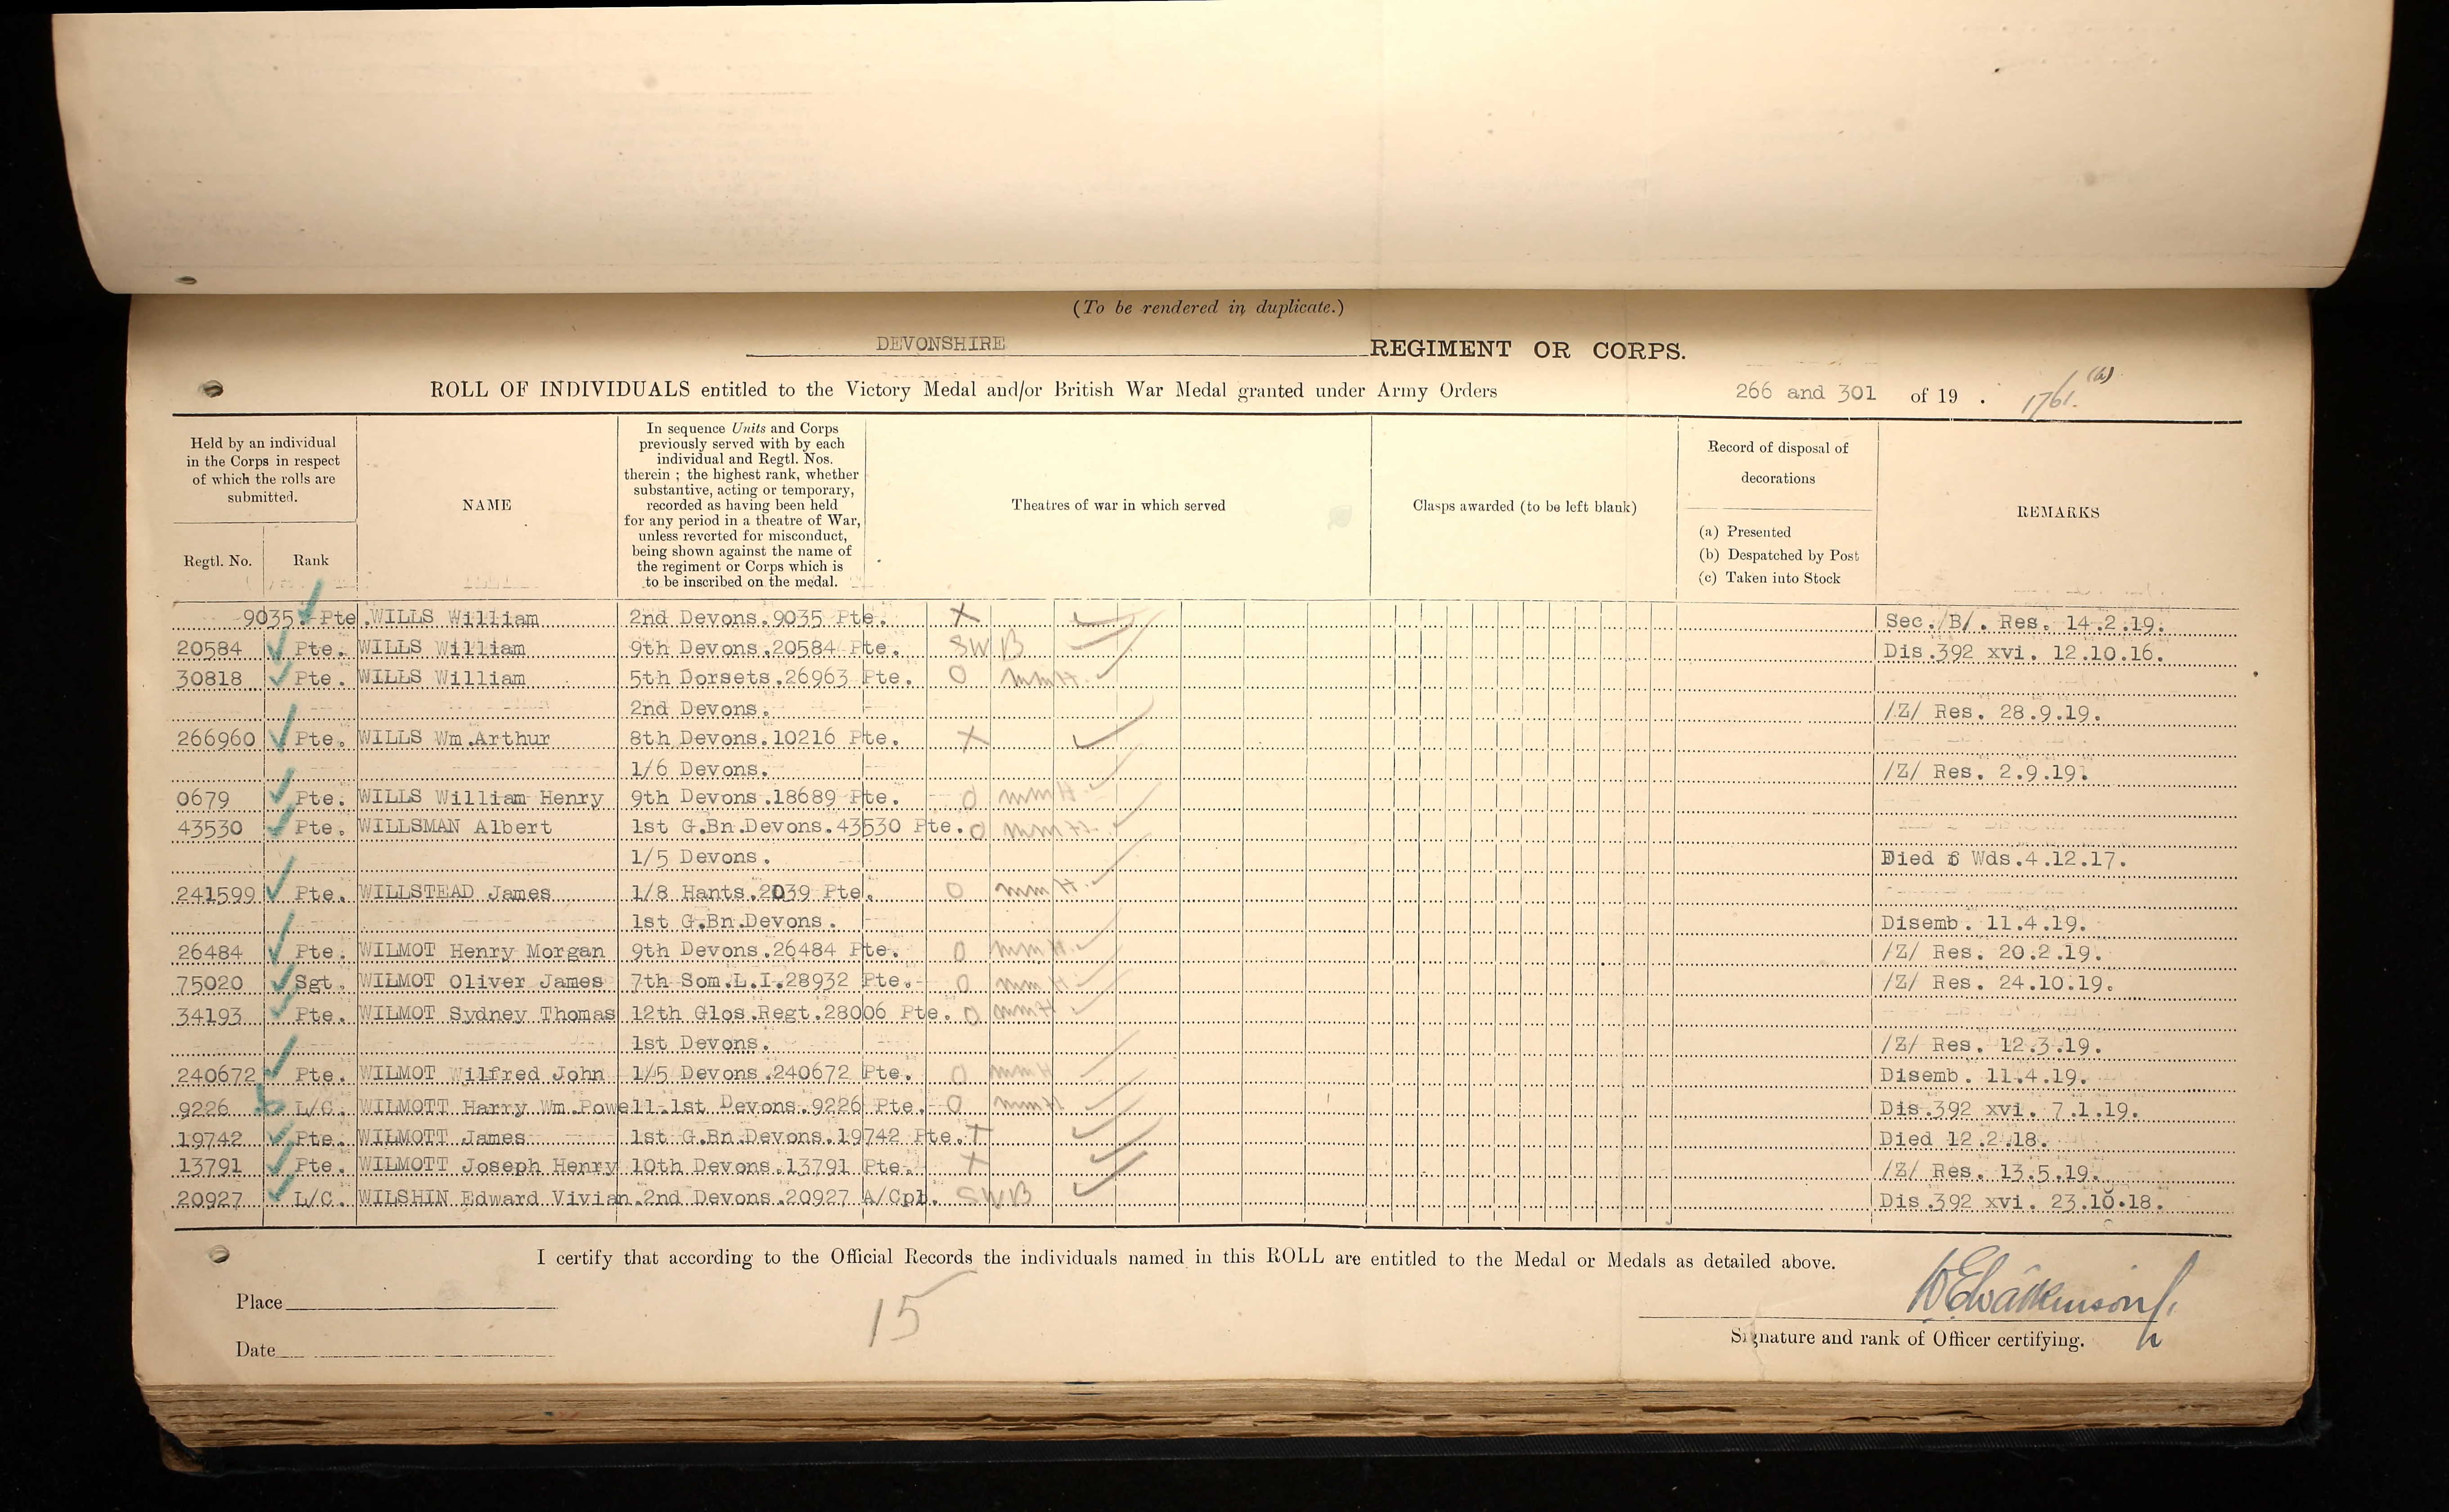 (To be rendered in duplicate.)
DEVONSHIRE REGIMENT OR CORPS.
ROLL OF INDIVIDUALS entitled to the Victory Medal and/or British War Medal granted under Army Orders 266 and 301 of 19 . 1761. (a)
Held by an individual
in the Corps in respect
of which the rolls are
submitted.
Regtl. No. Rank
NAME
In sequence Units and Corps
previously served with by each
individual and Regtl. Nos.
therein ; the highest rank, whether
substantive, acting or temporary,
recorded as having been held
for any period in a theatre of War,
unless reverted for misconduct,
being shown against the name of
the regiment or Corps which is
to be inscribed on the medal.
Theatres of war in which served
Clasps awarded (to be left blank)
Record of disposal of
decorations
(a) Presented
(b) Despatched by Post
(c) Taken into Stock
REMARKS
9035 Pte. WILLS William 2nd Devons.9035 Pte. X Sec./B/. Res. 14.2.19.
20584 Pte. WILLS William 9th Devons.20584 Pte. SWB Dis.392 xvi. 12.10.16.
30818 Pte. WILLS William 5th Dorsets.26963 Pte. O mmH.
2nd Devons. /Z/ Res. 28.9.19.
266960 Pte. WILLS Wm.Arthur 8th Devons.10216 Pte. X
1/6 Devons. /Z/ Res. 2.9.19.
0679 Pte. WILLS William Henry 9th Devons.18689 Pte. O mmH
43530 Pte. WILLSMAN Albert 1st G.Bn.Devons.43530 Pte. O mmH.
1/5 Devons. Died Wds.4.12.17.
241599 Pte. WILLSTEAD James 1/8 Hants.2039 Pte. O mmH.
1st G.Bn.Devons. Disemb. 11.4.19.
26484 Pte. WILMOT Henry Morgan 9th Devons.26484 Pte. O mmH. /Z/ Res. 20.2.19.
75020 Sgt. WILMOT Oliver James 7th Som.L.I.28932 Pte. O mmH /Z/ Res. 24.10.19.
34193 Pte. WILMOT Sydney Thomas 12th Glos.Regt.28006 Pte. O mmH
1st Devons. /Z/ Res. 12.3.19.
240672 Pte. WILMOT Wilfred John 1/5 Devons.240672 Pte. O mmH Disemb. 11.4.19.
9226 L/C. WILMOTT Harry Wm.Powell.1st Devons.9226 Pte. O mmH Dis.392 xvi. 7.1.19.
19742 Pte. WILMOTT James 1st G.Bn.Devons.19742 Pte. T Died 12.2.18.
13791 Pte. WILMOTT Joseph Henry 10th Devons.13791 Pte. X /Z/ Res. 13.5.19.
20927 L/C. WILSHIN Edward Vivian.2nd Devons.20927 A/Cpl. SWB Dis.392 xvi. 23.10.18.
I certify that according to the Official Records the individuals named in this ROLL are entitled to the Medal or Medals as detailed above.
Place
15
Signature and rank of Officer certifying.
Date